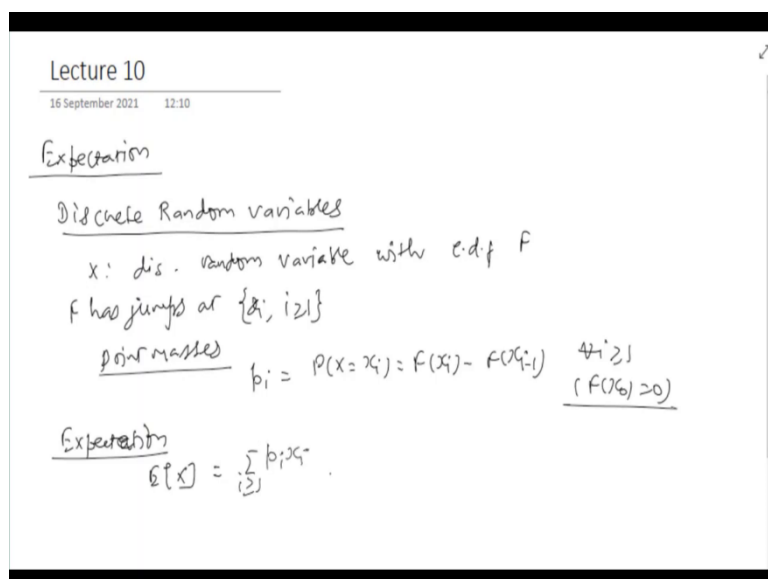 Lecture 10
16 September 2021 12:10
Expectation
Discrete Random variables
X: dis. random variable with c.d.f F
F has jumps at {xi, i≥1}
Point masses pi = P(X=xi) = F(xi) - F(xi-1) ∀i≥1
(F(x0)=0)
Expectation
E[X] = ∑i≥1 pixi.